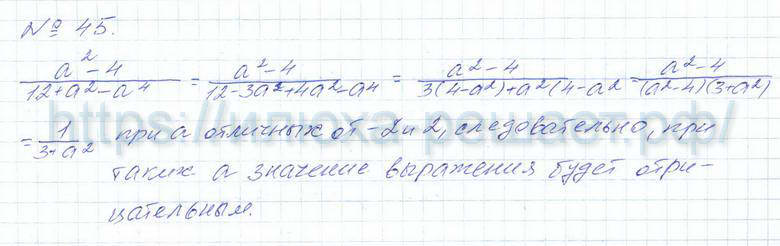 № 45.
a²-4/12+a²-a⁴ = a²-4/12-3a²+4a²-a⁴ = a²-4/3(4-a²)+a²(4-a² = a²-4/(a²-4)(3+a²)
= 1/3+a² при a отличных от -2 и 2, следовательно, при
таких a значение выражения будет отри-
цательным.
https://илюха-решает.рф/